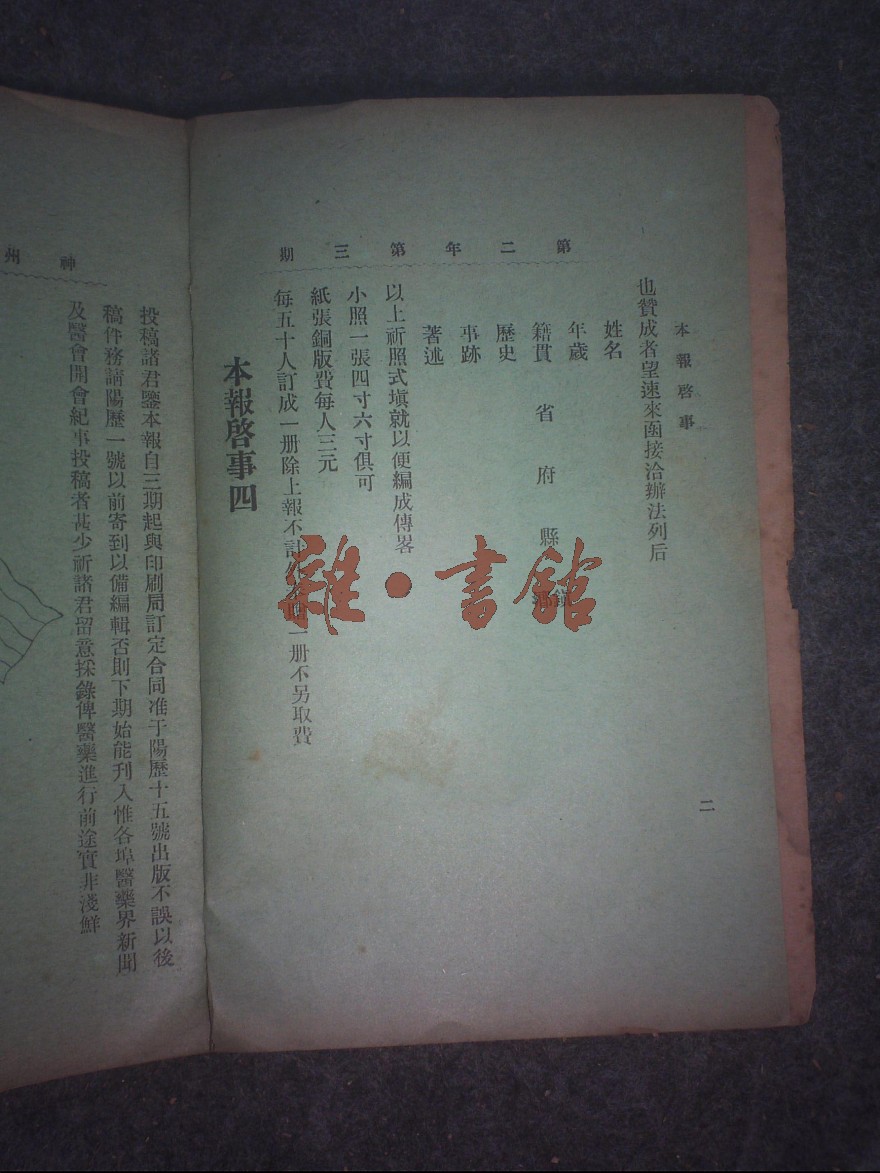 本報啓事
第二年第三期
也贊成者望速來函接洽辦法列后
姓名
年歲
籍貫 省 府 縣 鎮
歷史
事跡
著述
以上祈照式塡就以便編成傳畧
小照一張四寸六寸俱可
紙張銅版費每人三元
每五十人訂成一册除上報不計 一册不另取費
二
本報啓事四
神州
投稿諸君鑒本報自三期起與印刷局訂定合同准于陽歷十五號出版不誤以後
稿件務請陽歷一號以前寄到以備編輯否則下期始能刋入惟各埠醫藥界新聞
及醫會開會紀事投稿者甚少祈諸君留意採錄俾醫藥進行前途實非淺鮮
雜·書館